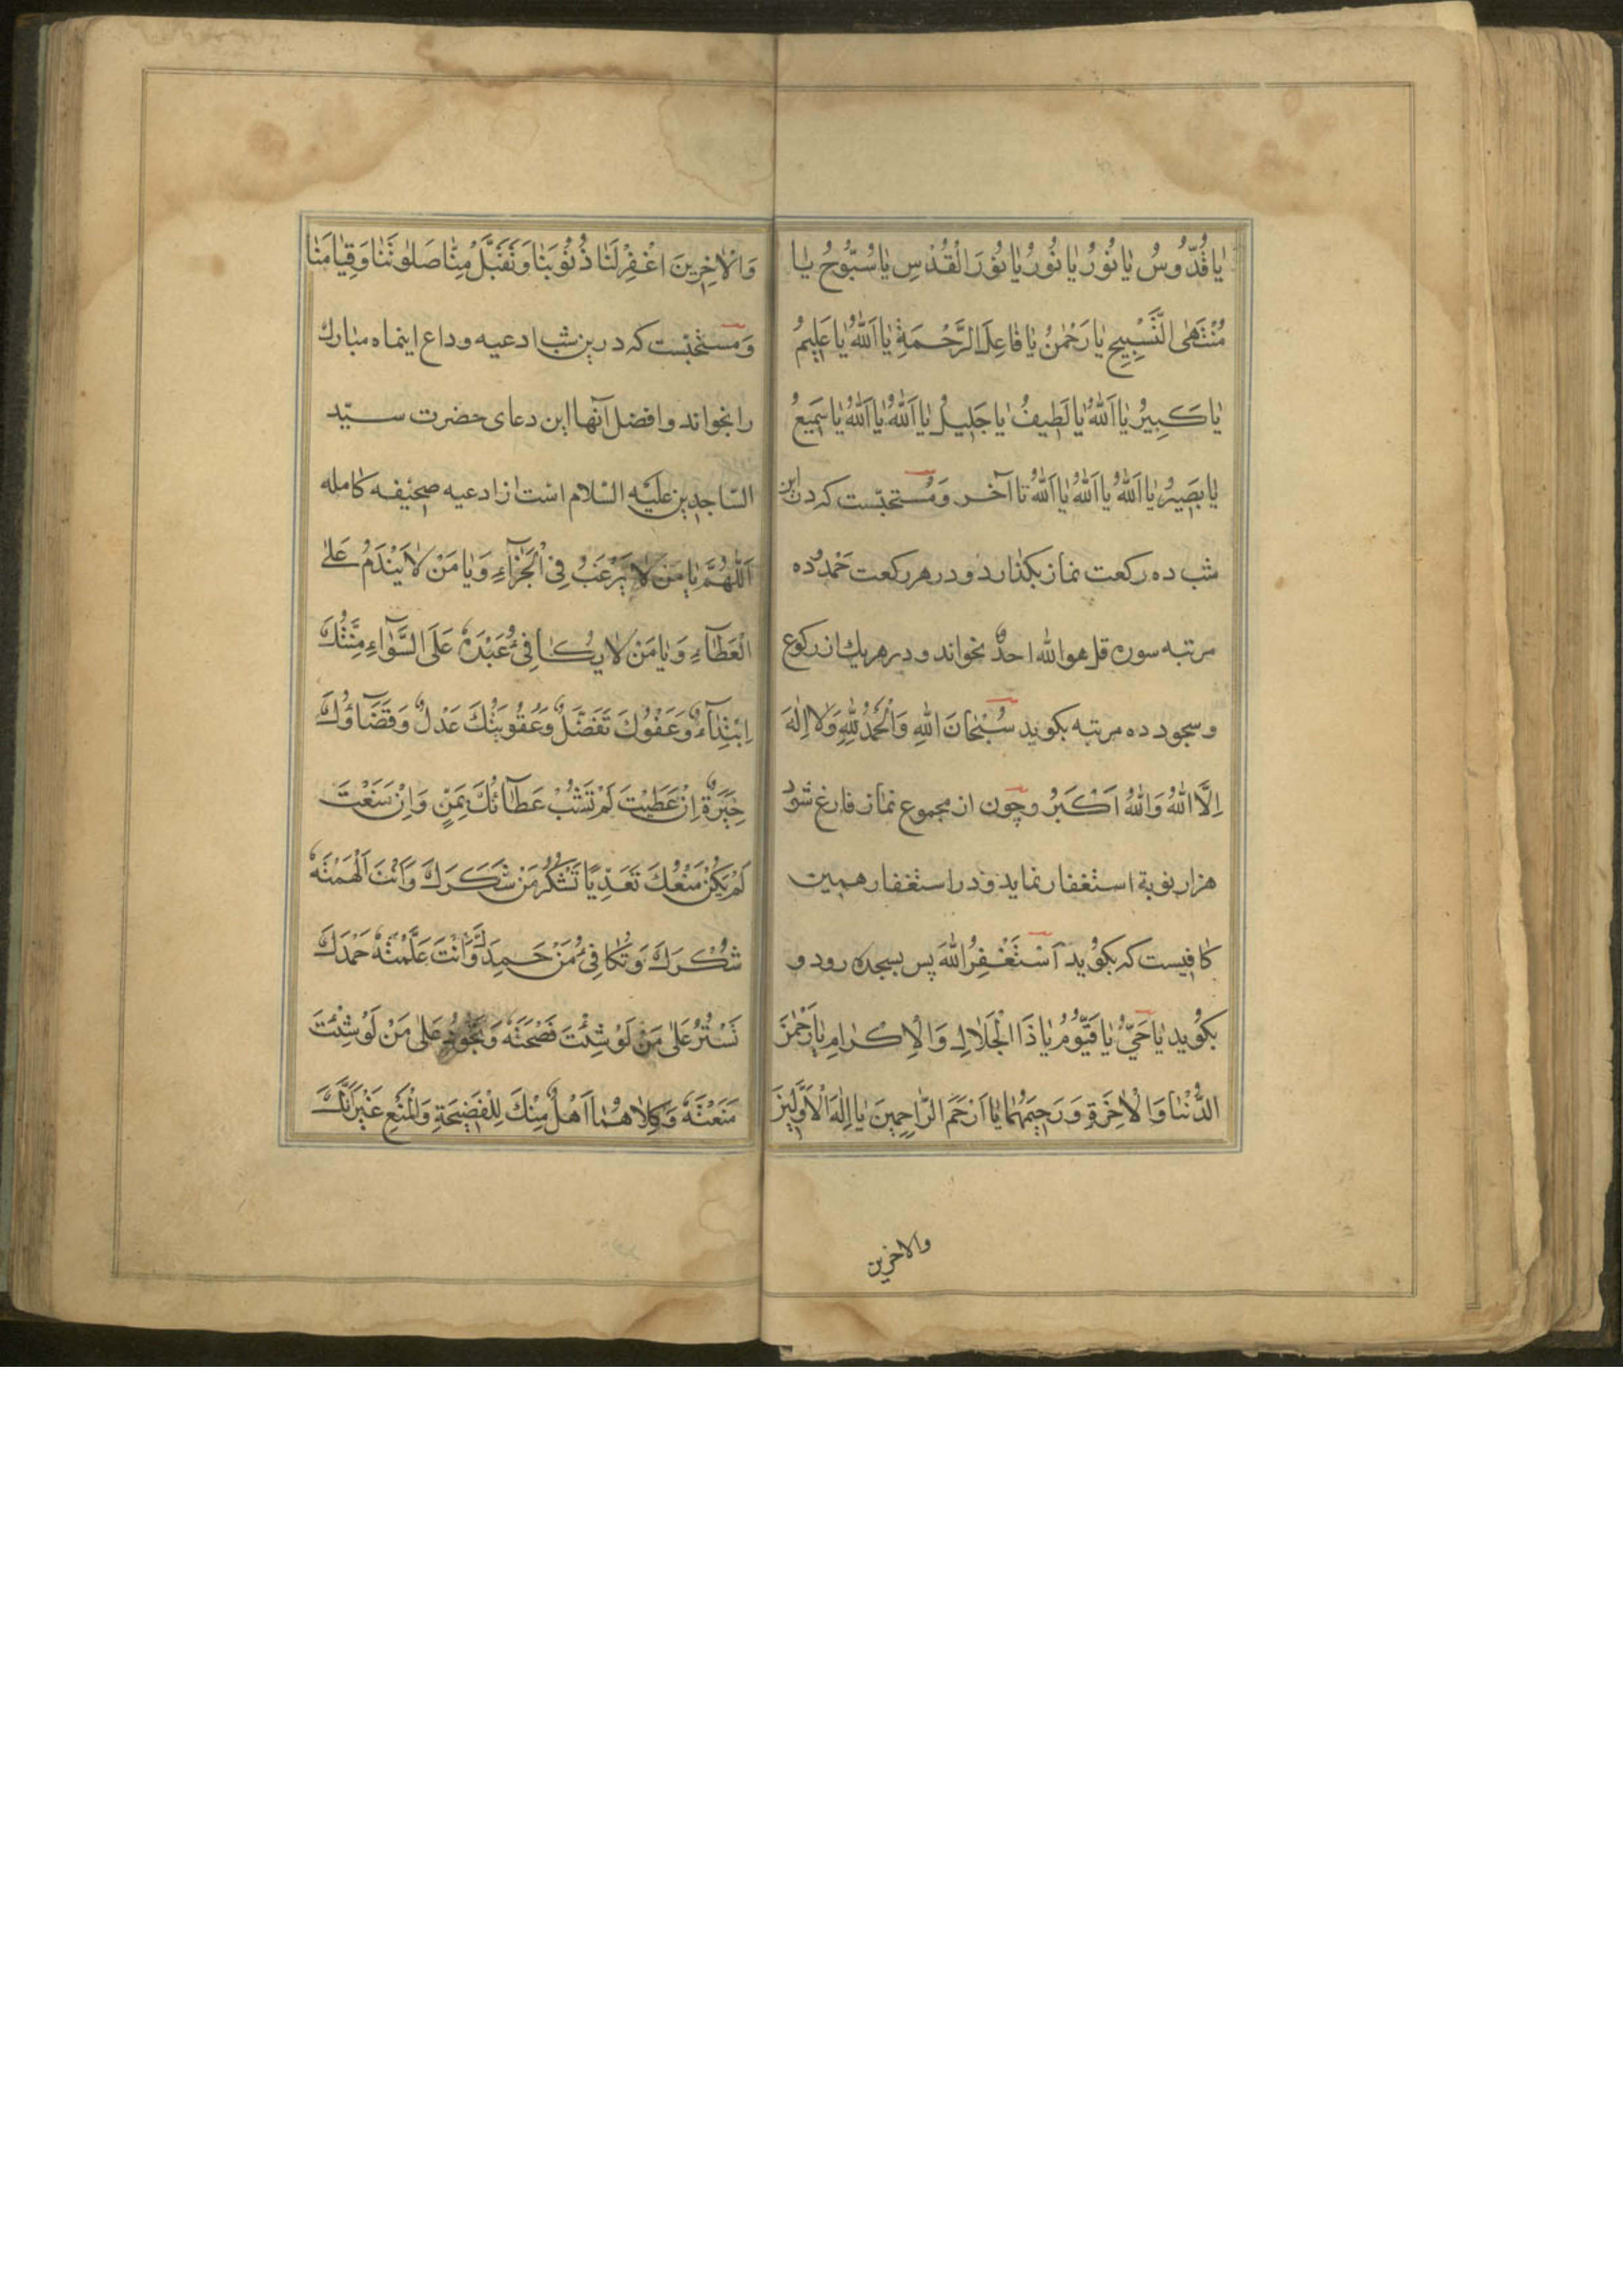 یٰا قُدُّوسُ یٰا نُورُ یٰا نُورُ یٰا نُورَ الْقُدْسِ یٰا سُبُّوحُ یٰا
مُنْتَهَی التَّسْبِیحِ یٰا رَحْمٰنُ یٰا فٰاعِلَ الرَّحْمَةِ یٰا اَللّٰهُ یٰا عَلِیمُ
یٰا کَبِیرُ یٰا اَللّٰهُ یٰا لَطِیفُ یٰا جَلِیلُ یٰا اَللّٰهُ یٰا اَللّٰهُ یٰا سَمِیعُ
یٰا بَصِیرُ یٰا اَللّٰهُ یٰا اَللّٰهُ یٰا اَللّٰهُ تا آخر وَمُستحبّست که درین
شب ده رکعت نماز بکذارد و در هر رکعت حَمْد و ده
مرتبه سوره قل هو الله احدٌ بخواند و در هر یك از رکوع
و سجود ده مرتبه بکوید سُبْحٰانَ اللّٰهِ وَالْحَمْدُ لِلّٰهِ وَلاٰ اِلٰهَ
اِلَّا اللّٰهُ وَاللّٰهُ اَکْبَرُ وچون از مجموع نماز فارغ شود
هزار نوبة استغفار نماید و در استغفار همین
کافیست که بکوید اَسْتَغْفِرُ اللّٰهَ پس بسجده رود و
بکوید یٰا حَیُّ یٰا قَیُّومُ یٰا ذَا الْجَلاٰلِ وَالْاِکْرٰامِ یٰا رَحْمٰنَ
الدُّنْیٰا وَالْاٰخِرَةِ وَرَحِیمَهُمٰا یٰا اَرْحَمَ الرّٰاحِمِینَ یٰا اِلٰهَ الْاَوَّلِینَ
والاخرین
وَالْاٰخِرِینَ اغْفِرْ لَنٰا ذُنُوبَنٰا وَتَقَبَّلْ مِنّٰا صَلٰوتَنٰا وَقِیٰامَنٰا
وَمستحبّست که درین شب ادعیه وداع اینماه مبارك
را بخواند و افضل آنها این دعای حضرت سیّد
السّاجدین علیه السّلام است از ادعیه صحیفه کامله
اَللّٰهُمَّ یٰا مَنْ لاٰ یَرْغَبُ فِی الْجَزٰآءِ وَیٰا مَنْ لاٰ یَنْدَمُ عَلَی
الْعَطٰآءِ وَیٰا مَنْ لاٰ یُکٰافِئُ عَبْدَهُ عَلَی السَّوٰآءِ مِنَّتُكَ
اِبْتِدٰآءٌ وَعَفْوُكَ تَفَضُّلٌ وَعُقُوبَتُكَ عَدْلٌ وَقَضَآؤُكَ
خِیَرَةٌ اِنْ عَطَیْتَ لَمْ تَشُبْ عَطٰآئَكَ بِمَنٍّ وَاِنْ مَنَعْتَ
لَمْ یَکُنْ مَنْعُكَ تَعَدِّیًا تَشْکُرُ مَنْ شَکَرَكَ وَاَنْتَ اَلْهَمْتَهُ
شُکْرَكَ وَتُکٰافِئُ مَنْ حَمِدَكَ وَاَنْتَ عَلَّمْتَهُ حَمْدَكَ
تَسْتُرُ عَلٰی مَنْ لَوْ شِئْتَ فَضَحْتَهُ وَتَجُودُ عَلٰی مَنْ لَوْ شِئْتَ
مَنَعْتَهُ وَکِلاٰهُمٰا اَهْلٌ مِنْكَ لِلْفَضِیحَةِ وَالْمَنْعِ غَیْرَ اَنَّكَ